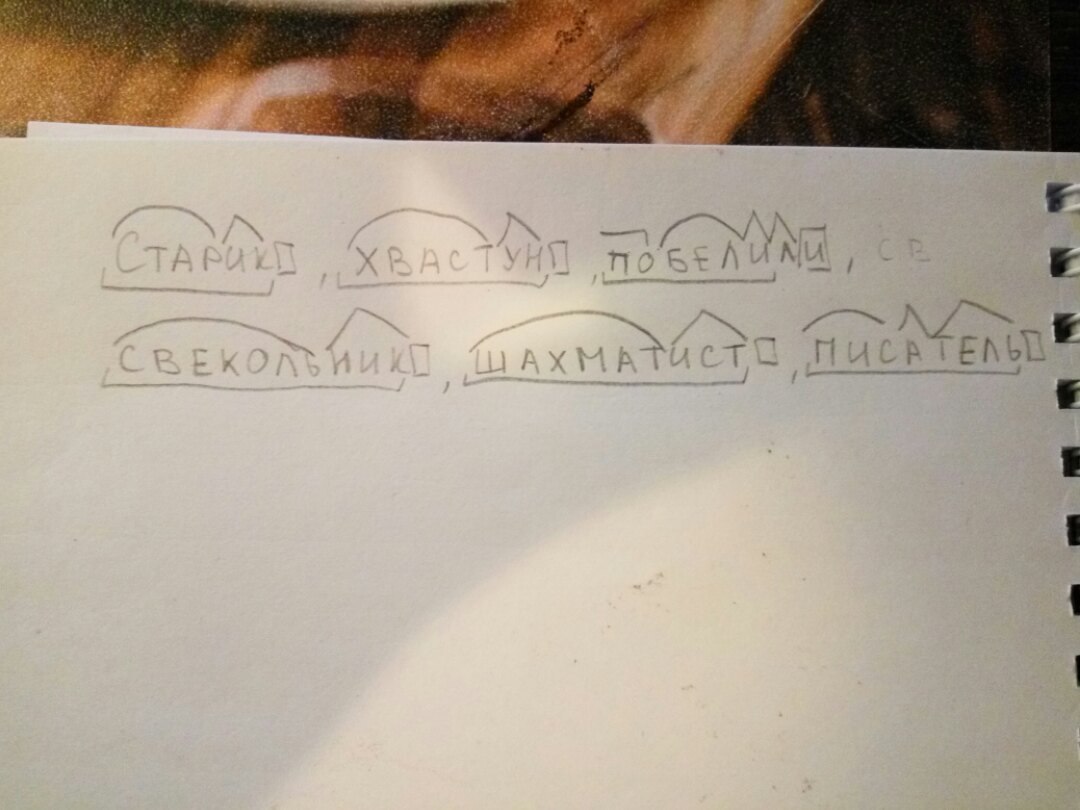 Старик, хвастун, побелили, св
свекольник, шахматист, писатель